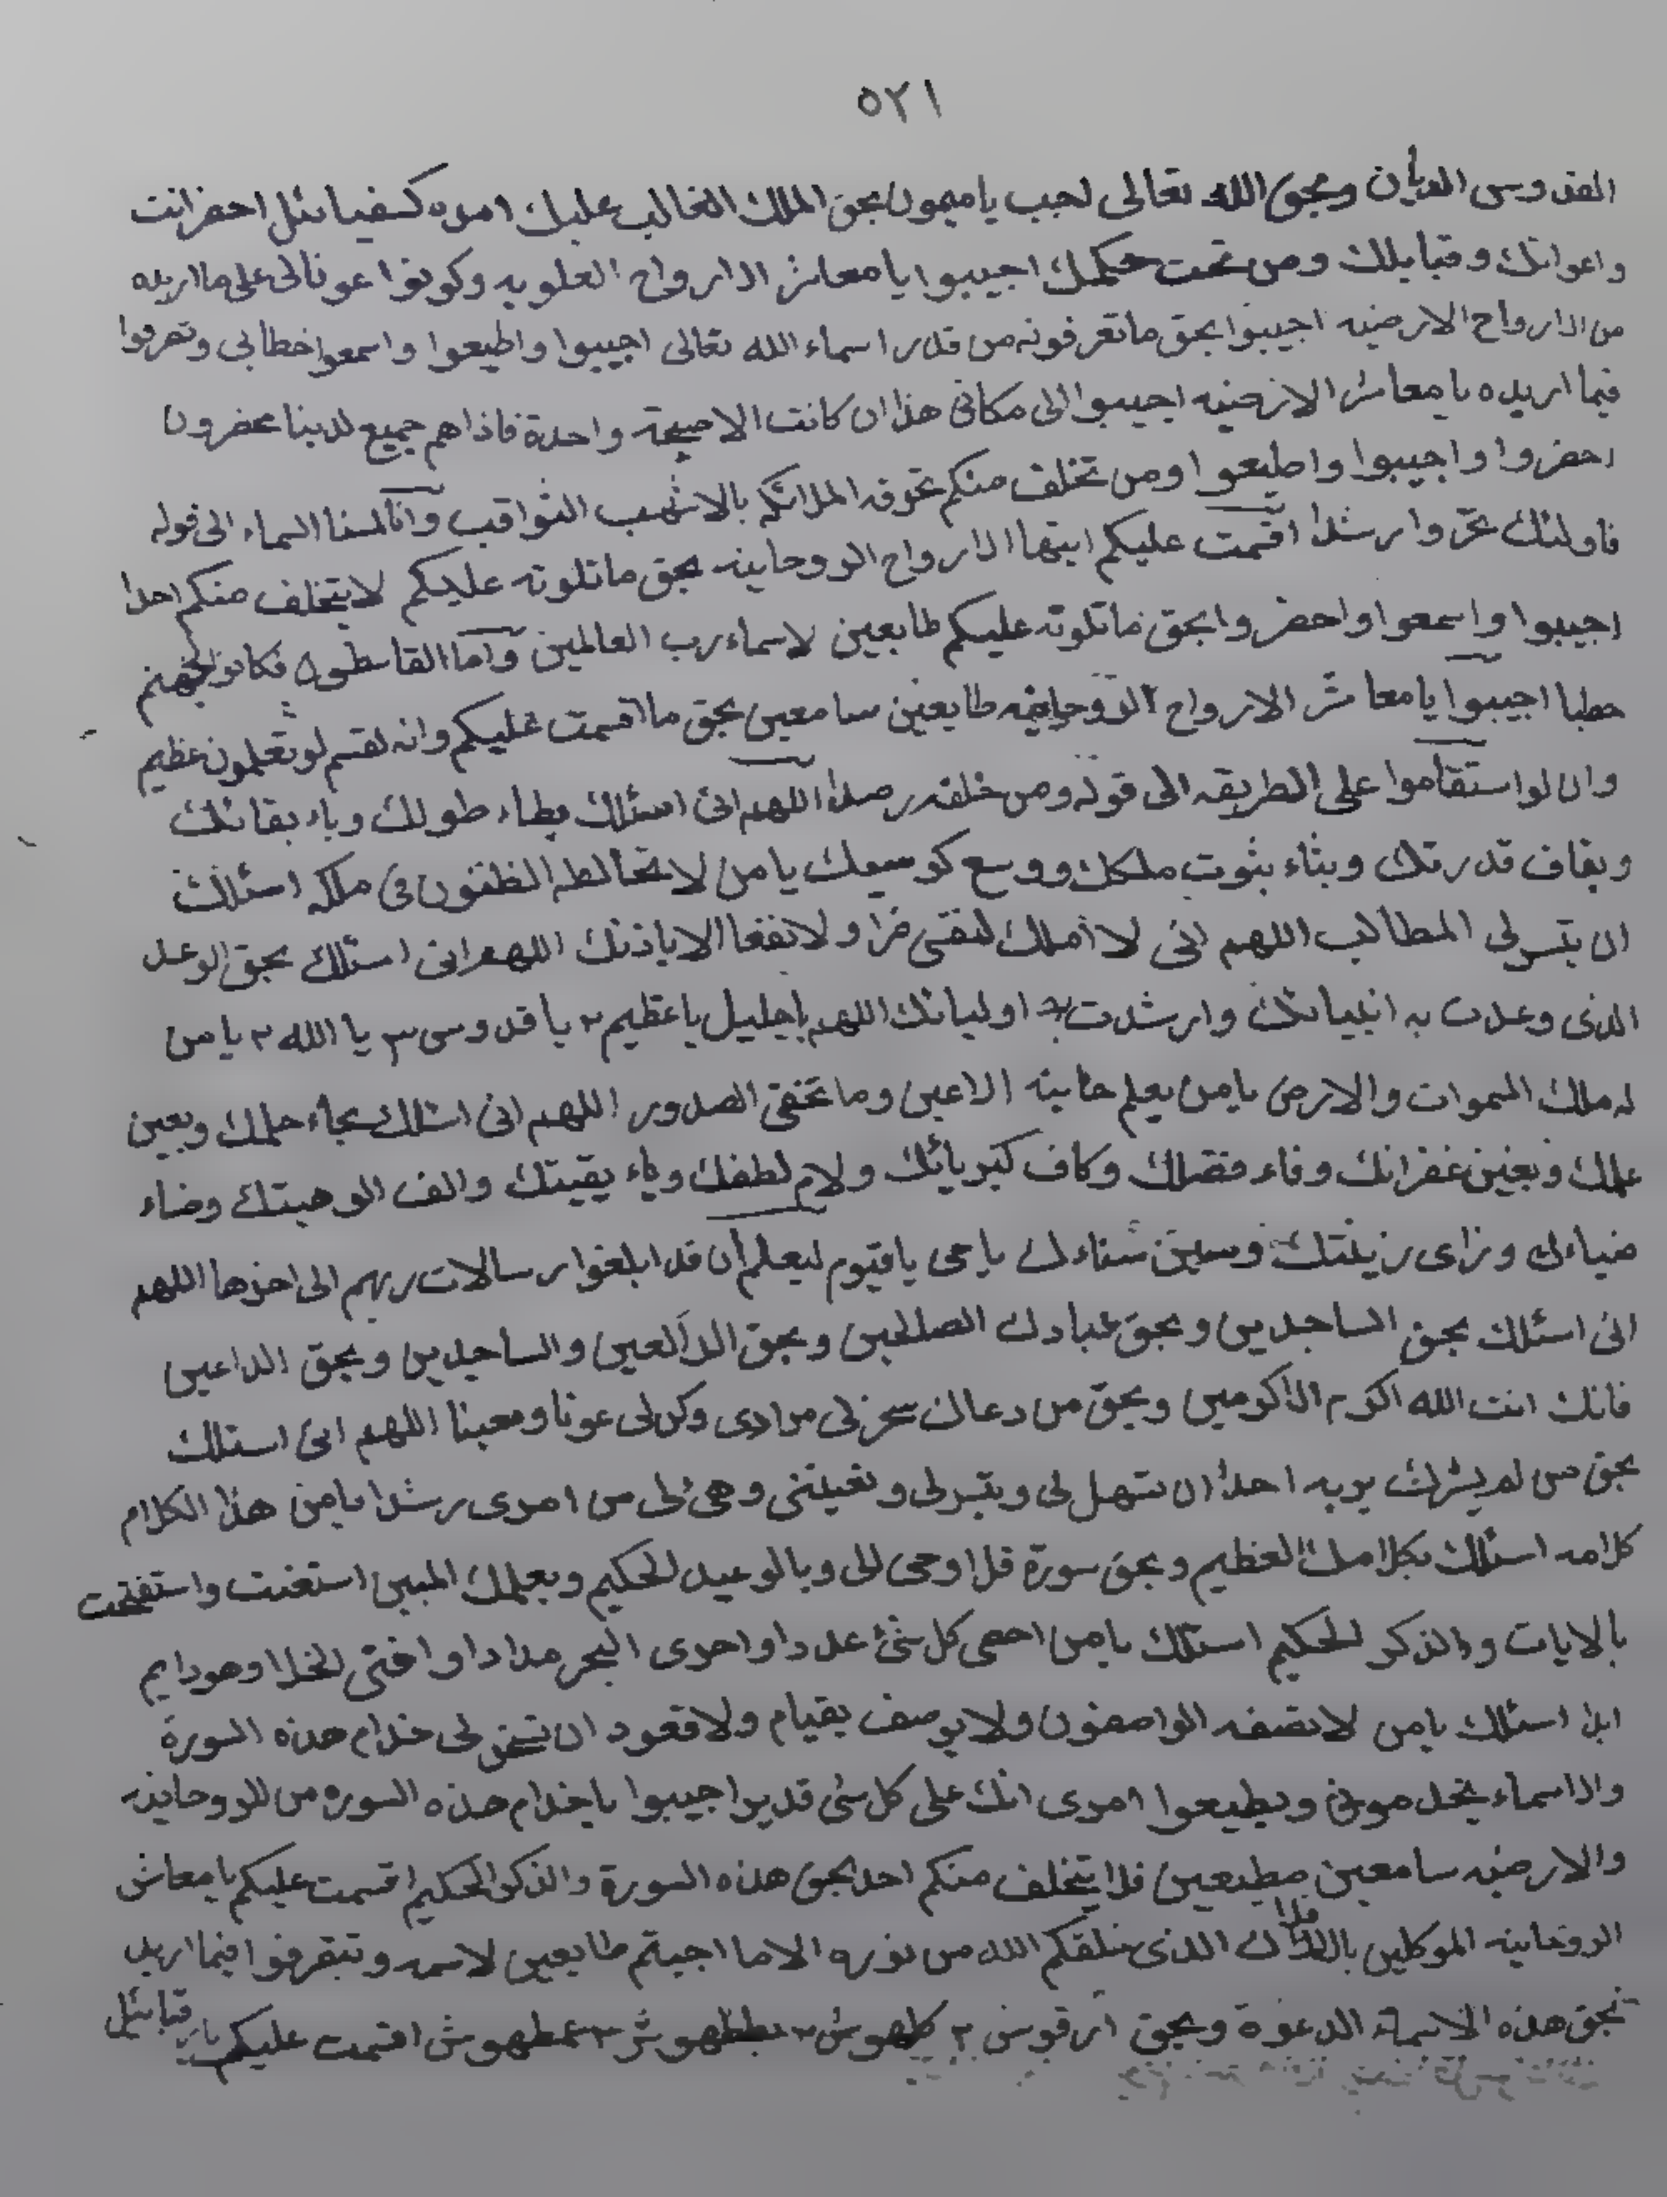 ٥٢١
القدوس الديان وبحق الله تعالى اجب ياميمون بحق الملك الغالب عليك امره كسفيائيل احضر انت
واعوانك وقبايلك ومن تحت حكمك اجيبوا يا معاشر الارواح العلويه وكونوا عونا لى على ما اريده
من الارواح الارضيه اجيبوا بحق ما تعرفونه من قدر اسماء الله تعالى اجيبوا واطيعوا واسمعوا خطابى وتصرفوا
فيما اريده يا معاشر الارضيه اجيبوا الى مكانى هذا ان كانت الا صيحة واحدة فاذا هم جميع لدينا محضرون
احضروا واجيبوا واطيعوا ومن تخلف منكم تحرقه الملائكه بالاشهب الثواقب وانا لمسنا السماء الى قوله
فاولئك تحروا رشدا اقسمت عليكم ايتها الارواح الروحانيه بحق ما تلوته عليكم لا يتخلف منكم احدا
اجيبوا واسمعوا واحضروا بحق ما تلوته عليكم طايعين لاسماء رب العالمين واما القاسطون فكانوا لجهنم
حطبا اجيبوا يا معاشر الارواح الروحانيه طايعين سامعين بحق ما اقسمت عليكم وانه لقسم لو تعلمون عظيم
وان لو استقاموا على الطريقه الى قوله ومن خلفه رصدا اللهم انى اسئلك بطاء طولك وباء بقائك
وبقاف قدرتك وبثاء بثوت ملكك ووسع كرسيك يا من لا تخالطه الظنون فى ملكه اسئلك
ان يتسر لى المطالب اللهم انى لا املك لنفسى ضرا ولا نفعا الا باذنك اللهم انى اسئلك بحق الوعد
الذى وعدت به انبيائك وارشدت به اوليائك اللهم ياجليل ياعظيم ٢ يا قدوس ٣ يا الله ٢ يا من
له ملك السموات والارض يا من يعلم خاينه الاعين وما تخفى الصدور اللهم انى اسئلك بحاء حلمك وبعين
علمك وبغين غفرانك وفاء فضلك وكاف كبريائك ولام لطفك وياء يقينك والف الوهيتك وضاء
ضياءك وزاى زينتك وسين سناءك يا حى يا قيوم ليعلم ان قد ابلغوا رسالات ربهم الى اخرها اللهم
انى اسئلك بحق الساجدين وبحق عبادك الصلحين وبحق الراكعين والساجدين وبحق الداعين
فانك انت الله اكرم الاكرمين وبحق من دعاك سخر لى مرادى وكن لى عونا ومعينا اللهم انى اسئلك
بحق من لم يشرك بربه احدا ان تسهل لى ويتسر لى وتعيننى وهىء لى من امرى رشدا يامن هذا الكلام
كلامه اسئلك بكلامك العظيم وبحق سورة قل اوحى الى وبالوعيد الحكيم وبعلمك المبين استعنت واستفتحت
بالايات والذكر الحكيم اسئلك يامن احصى كل شئ عددا واجرى البحر مدادا وافنى الخلا وهو دايم
ابدا اسئلك يامن لا تصفه الواصفون ولا يوصف بقيام ولا قعود ان تسخر لى خدام هذه السورة
والاسماء يخدمونى ويطيعوا امرى انك على كل شى قدير اجيبوا ياخدام هذه السوره من الروحانيه
والارضيه سامعين مطيعين فلا يتخلف منكم احد بحق هذه السورة والذكر الحكيم اقسمت عليكم يا معاشر
الروحانيه الموكلين بالافلاك الذى خلقكم الله من نوره الا ما اجبتم طايعين لاسمه وتتصرفوا فيما اريد
بحق هذه الاسماء الدعوة وبحق ارقوش ٢ كلهوش ٢ بططهوش ٢ ممطهوش اقسمت عليكم يا رقيائيل